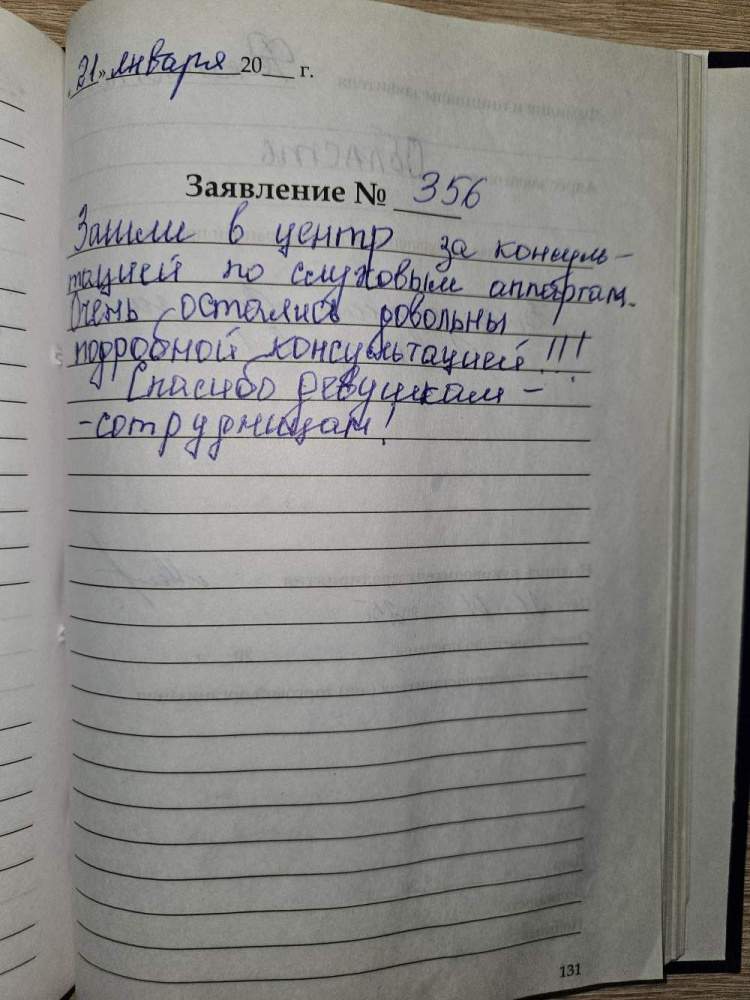 «21» января 20___ г.
Заявление № 356
Зашли в центр за консуль-
тацией по слуховым аппартам.
Очень остались довольны
подробной консультацией!!!
Спасибо девушкам -
-сотрудницам!
131